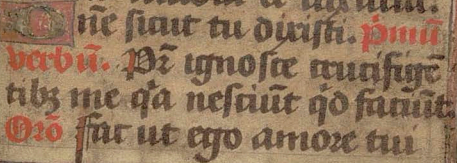 ne sicut tu dixisti. p̄mū
verbū. Pr̄ ignosce crucifigē
tibȝ me q̄a nesciūt q̄d faciūt.
Orō fac ut ego amore tui